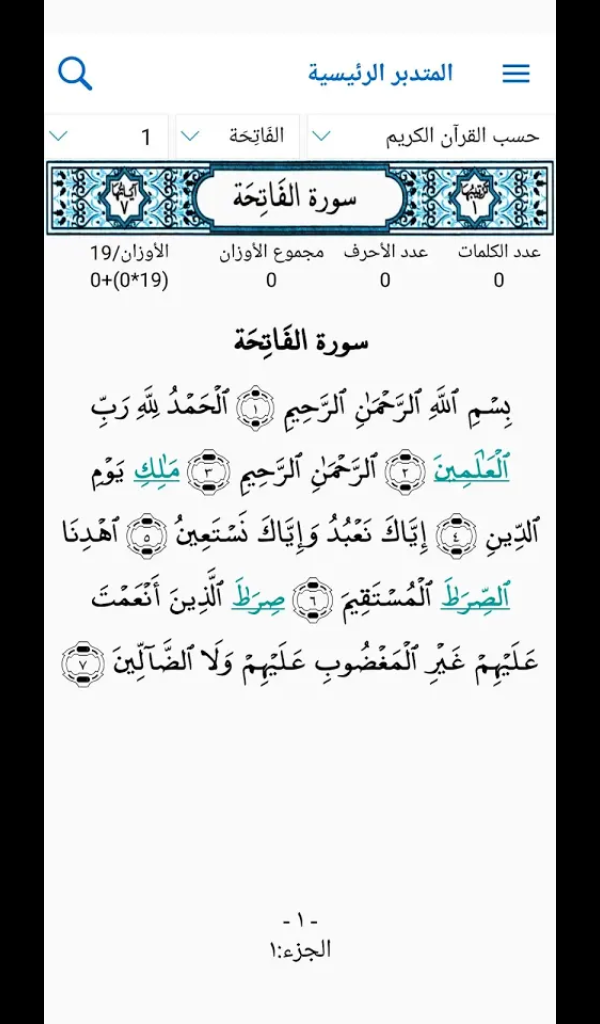 المتدبر الرئيسية
حسب القرآن الكريم الفَاتِحَة 1
ترتيبها ١ سورة الفَاتِحَة آياتها ٧
عدد الكلمات عدد الأحرف مجموع الأوزان الأوزان/19
0 0 0 0+(0*19)
سورة الفَاتِحَة
بِسْمِ ٱللَّهِ ٱلرَّحْمَٰنِ ٱلرَّحِيمِ ١ ٱلْحَمْدُ لِلَّهِ رَبِّ
ٱلْعَٰلَمِينَ ٢ ٱلرَّحْمَٰنِ ٱلرَّحِيمِ ٣ مَٰلِكِ يَوْمِ
ٱلدِّينِ ٤ إِيَّاكَ نَعْبُدُ وَإِيَّاكَ نَسْتَعِينُ ٥ ٱهْدِنَا
ٱلصِّرَٰطَ ٱلْمُسْتَقِيمَ ٦ صِرَٰطَ ٱلَّذِينَ أَنْعَمْتَ
عَلَيْهِمْ غَيْرِ ٱلْمَغْضُوبِ عَلَيْهِمْ وَلَا ٱلضَّآلِّينَ ٧
- ١ -
الجزء:١